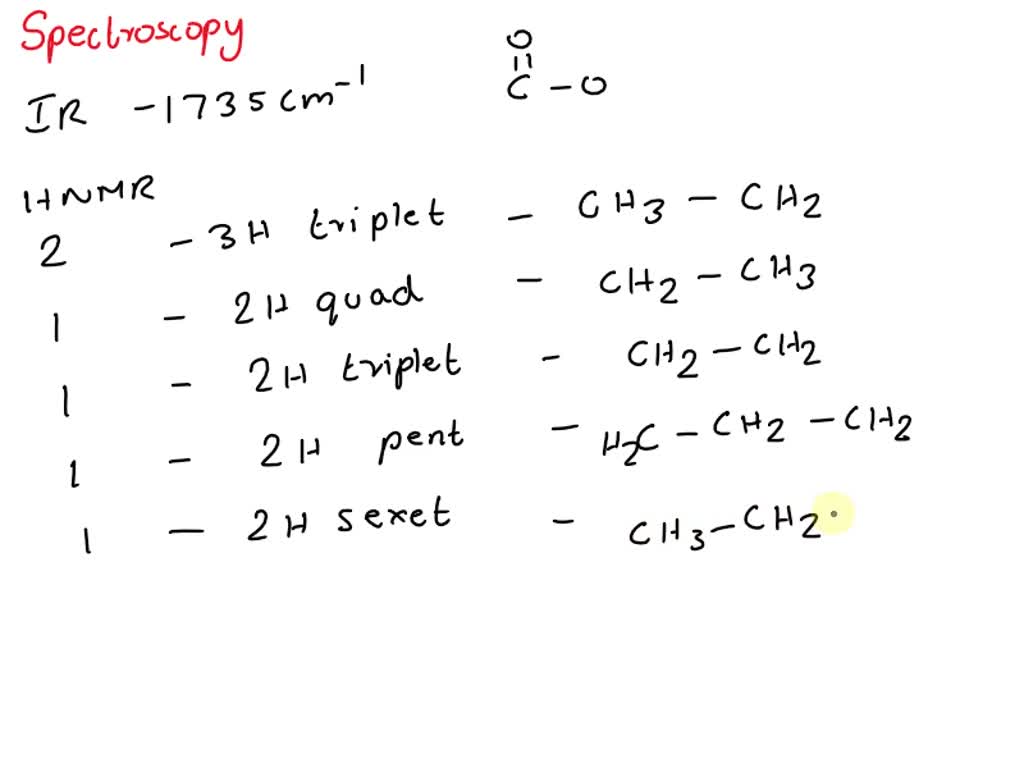 Spectroscopy
O
IR -1735 cm⁻¹ C - O
HNMR
2 - 3H triplet - CH3 - CH2
1 - 2H quad - CH2 - CH3
1 - 2H triplet - CH2 - CH2
1 - 2H pent - H2C - CH2 - CH2
1 - 2H sexet - CH3 - CH2